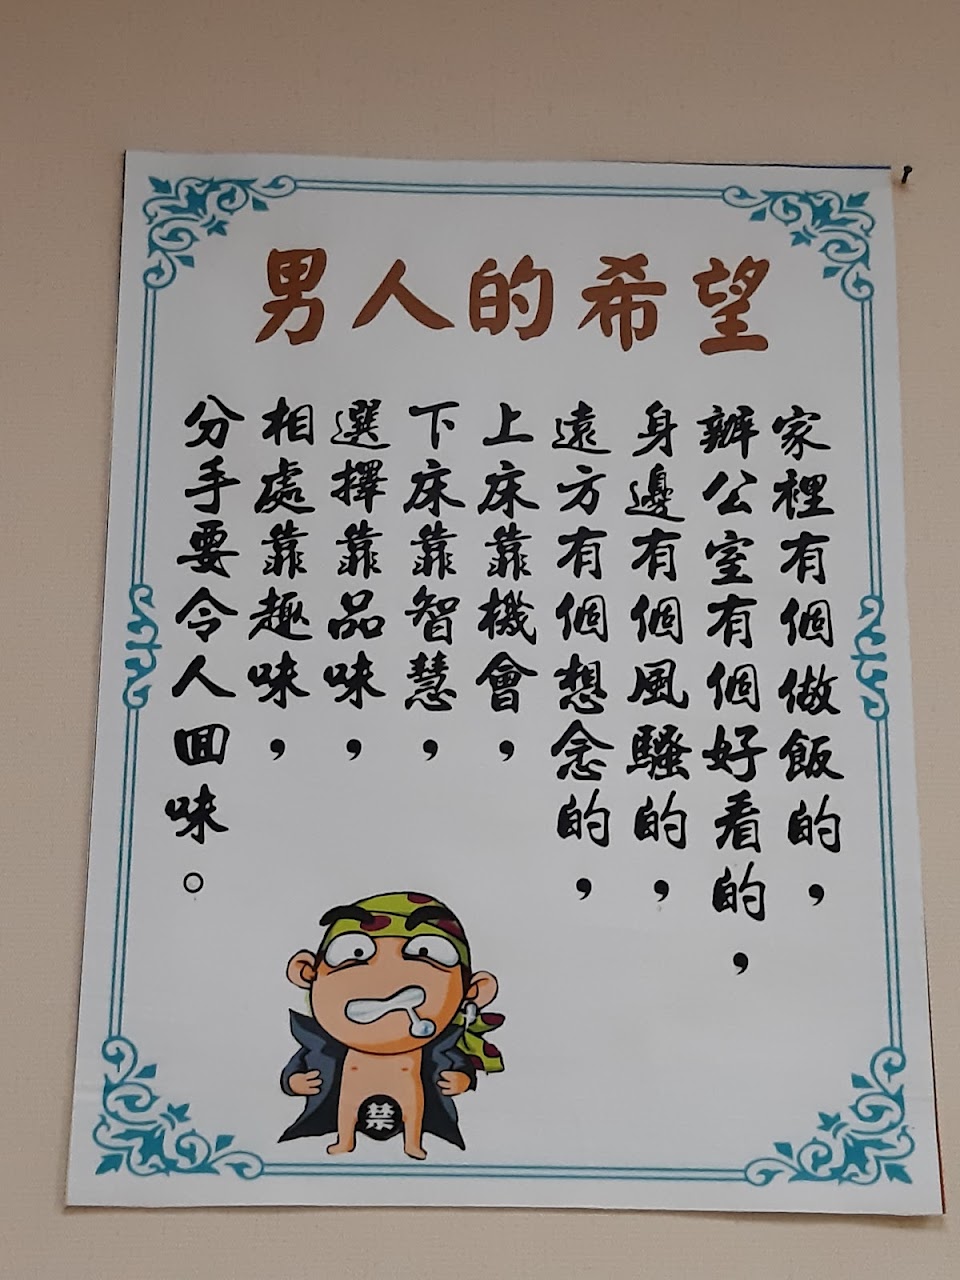 男人的希望
家裡有個做飯的，
辦公室有個好看的，
身邊有個風騷的，
遠方有個想念的，
上床靠機會，
下床靠智慧，
選擇靠品味，
相處靠趣味，
分手要令人回味。
禁